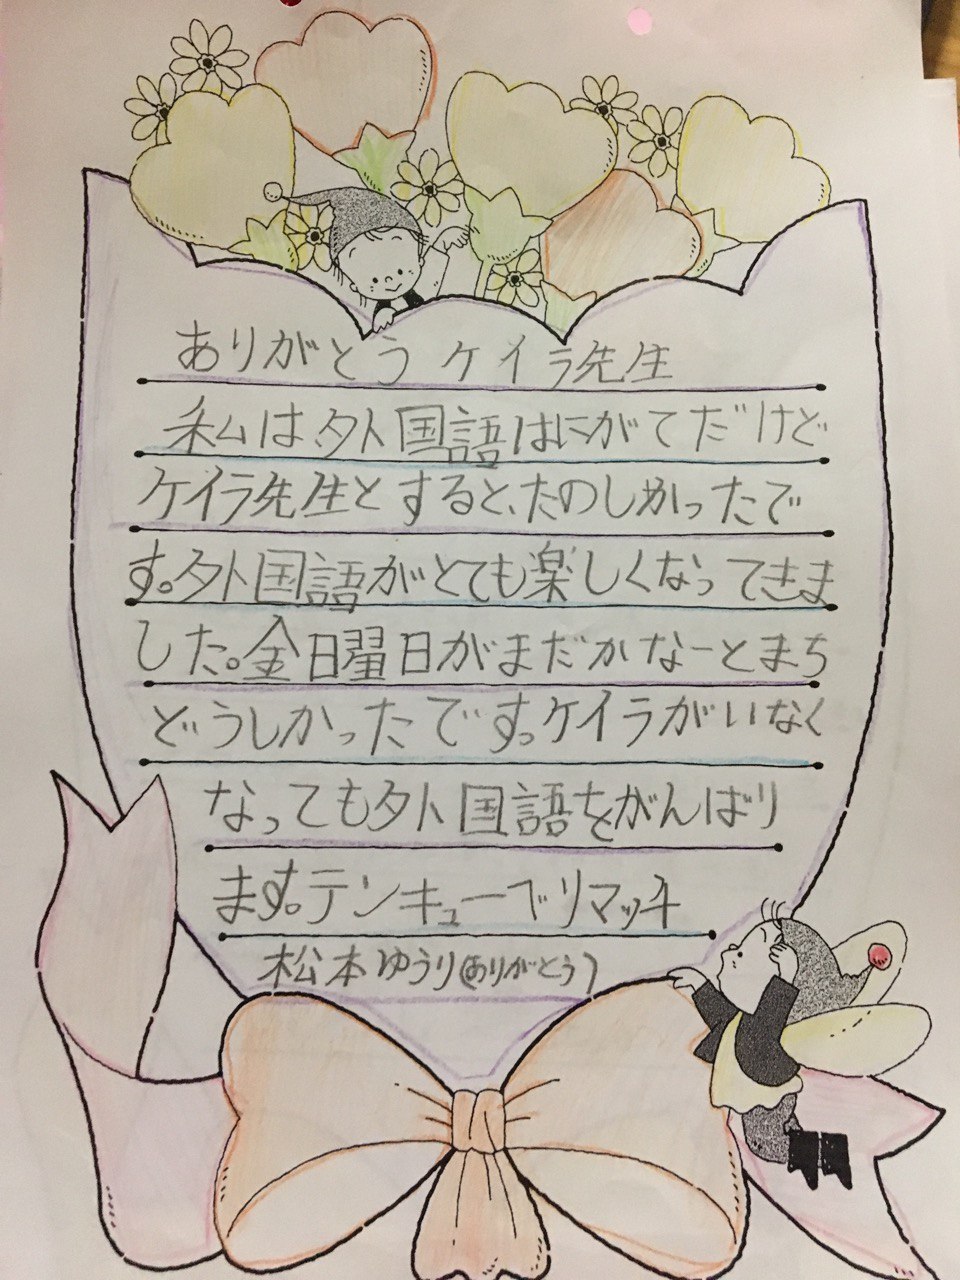 ありがとう ケイラ先生
私は外国語はにがてだけど
ケイラ先生とすると、たのしかったで
す。外国語がとても楽しくなってきま
した。金曜日がまだかなーとまち
どうしかったです。ケイラがいなく
なっても外国語をがんばり
ます。テンキューベリマッチ
松本ゆうり(ありがとう)